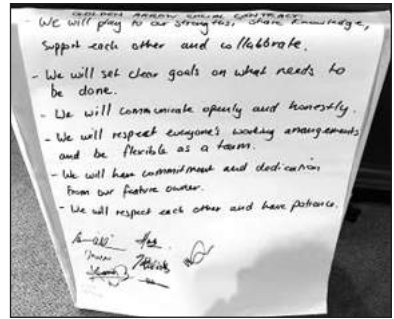 GOLDEN ARROW SOCIAL CONTRACT:
- We will play to our strengths, share knowledge,
support each other and collabbrate.
- We will set clear goals on what needs to
be done.
- We will communicate openly and honestly.
- We will respect everyone's working arrangements
and be flexible as a team.
- We will have commitment and dedication
from our feature owner.
- We will respect each other and have patience.